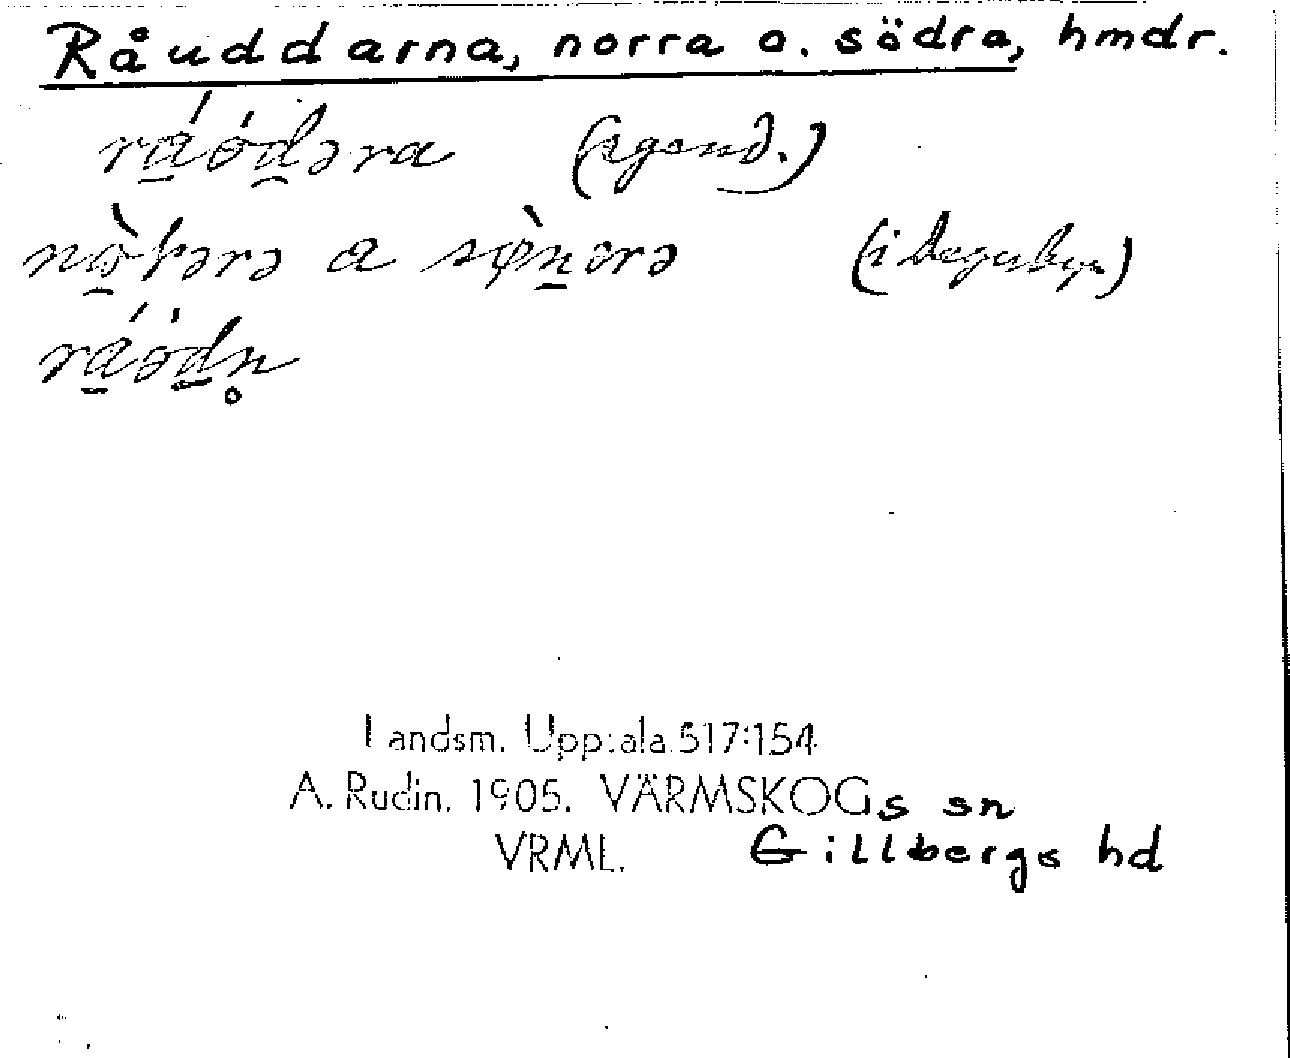 Råuddarna, norra o. södra, hmdr.
ráódəra (ägend.)
nòrərə a sònərə
ráódn̥
Landsm. Uppsala 517:154
A. Rudin. 1905. VÄRMSKOGs sn
VRML. Gillbergs hd